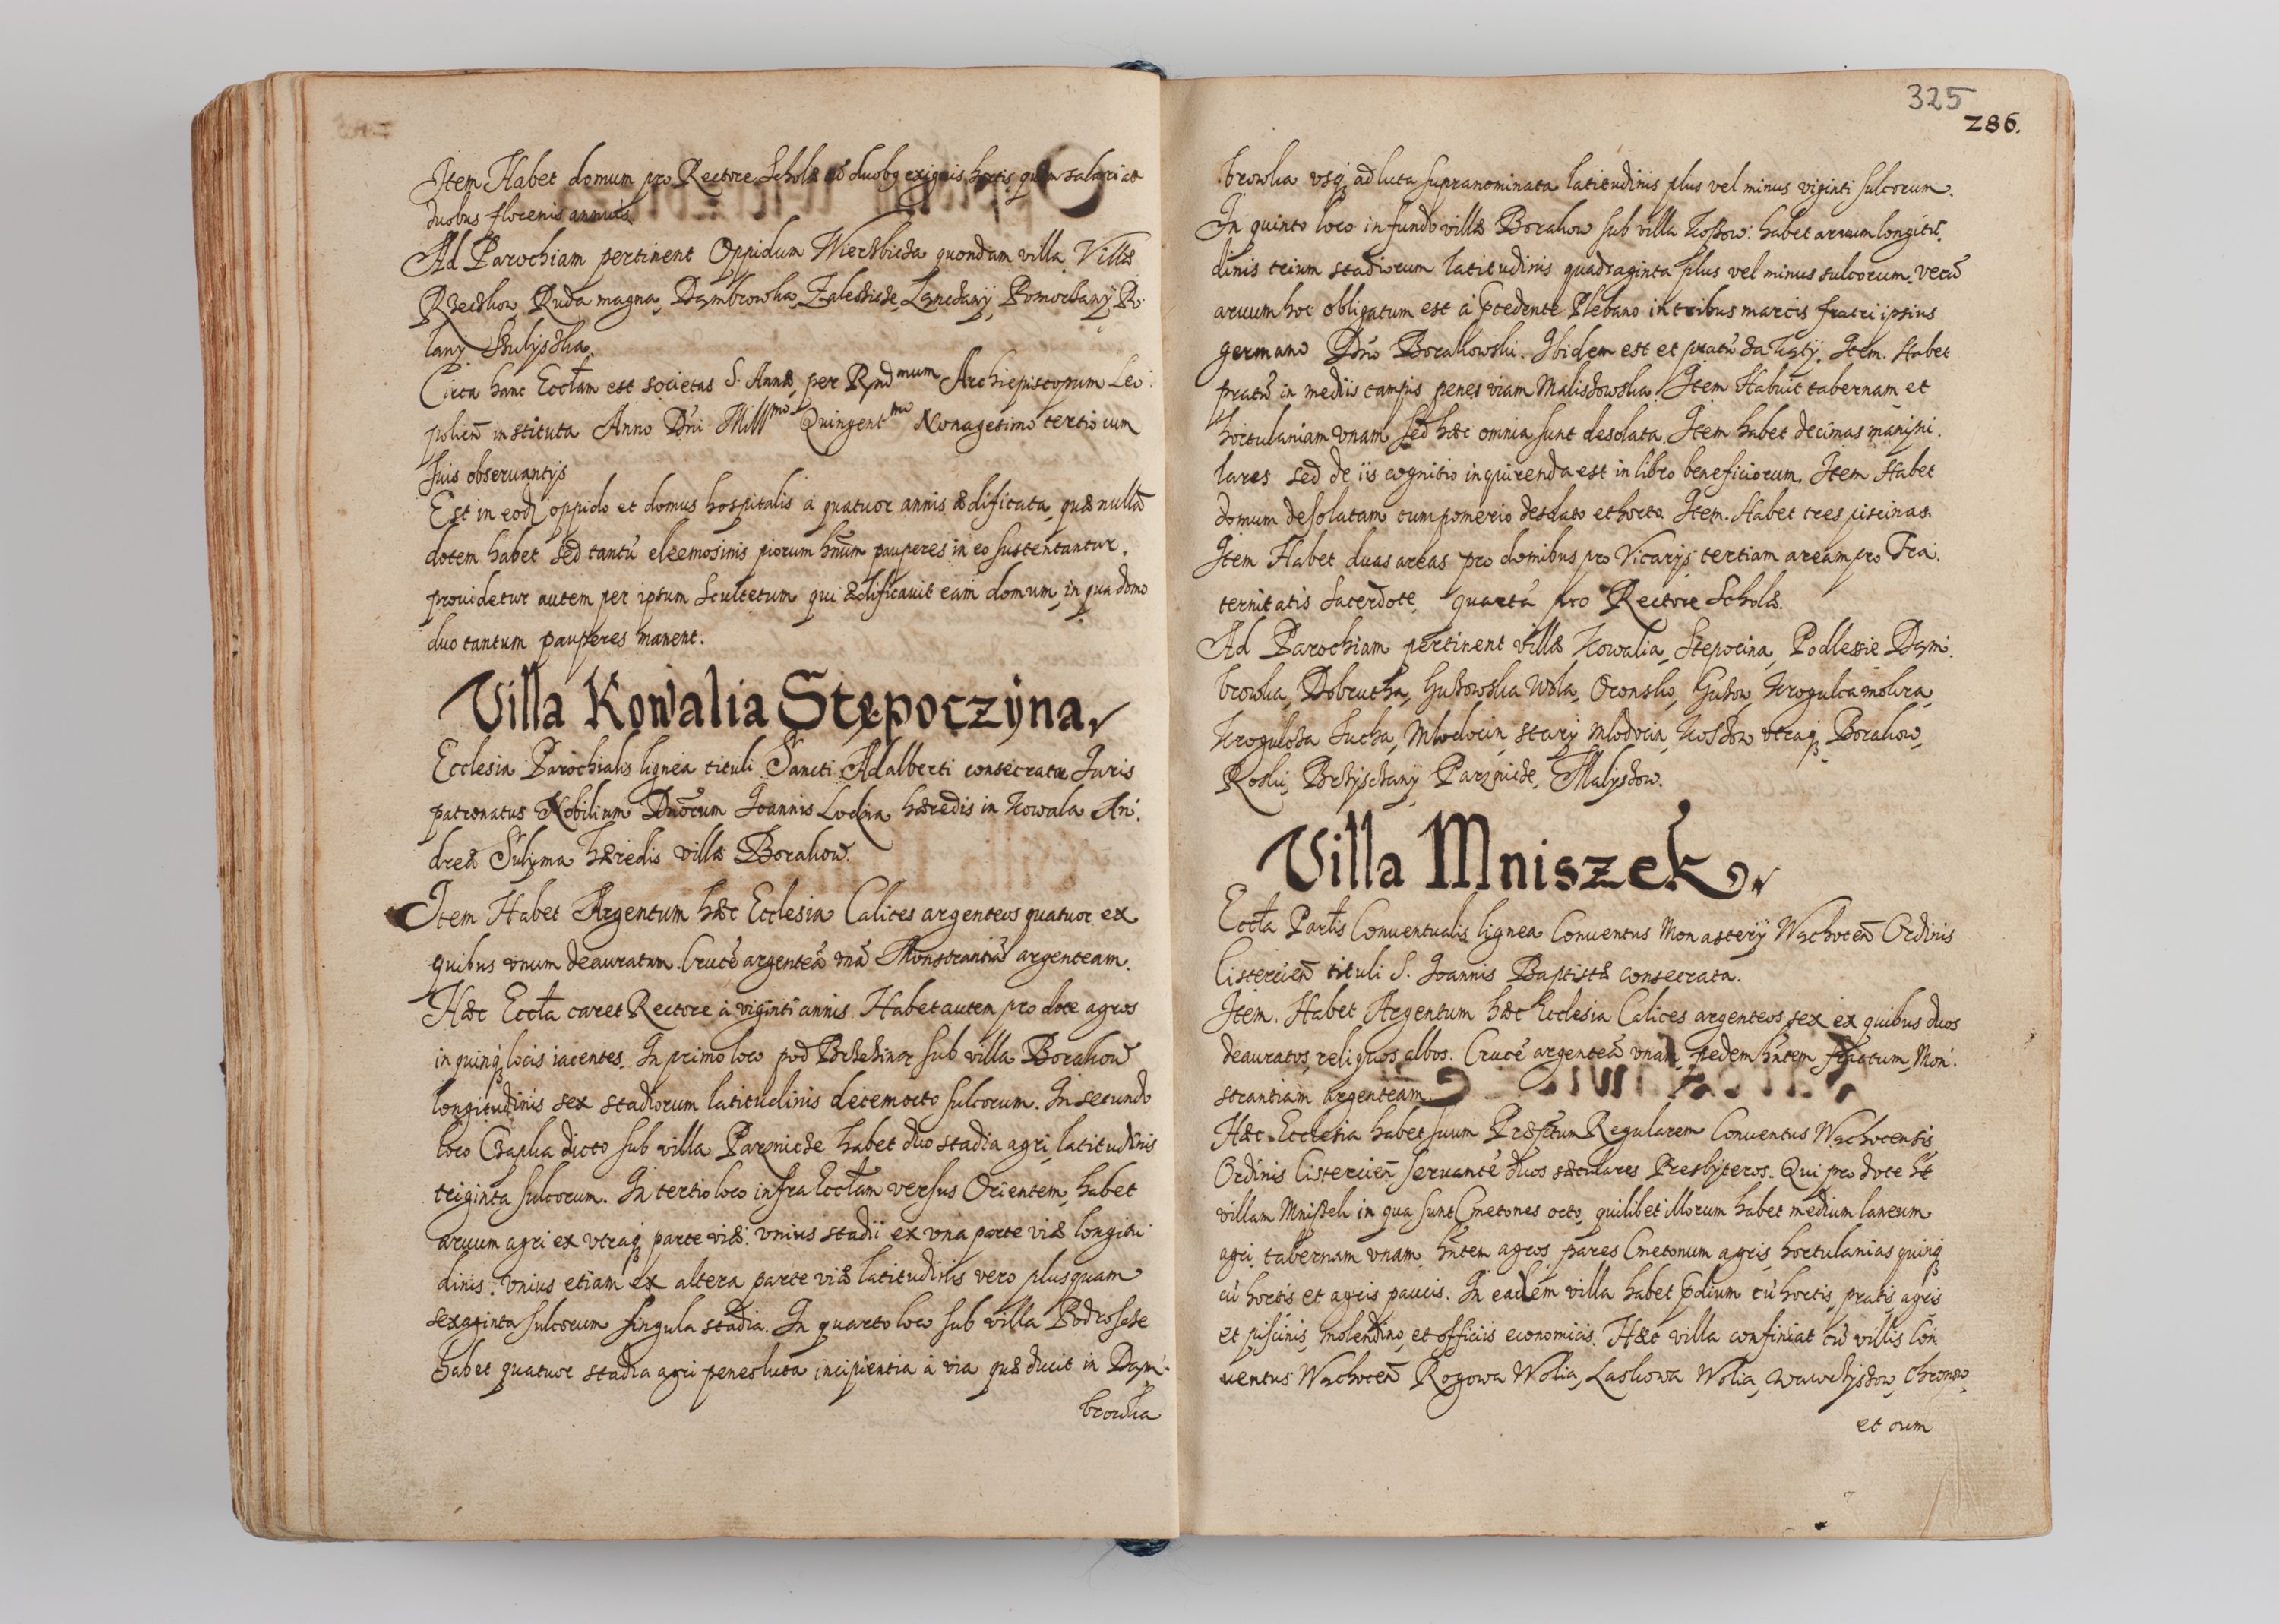 Item Habet domum pro Rectore Scholæ cũ duobʒ exiguis hortis quem salariat
duobus florenis annuis.
Ad Parochiam pertinent Oppidum Wierzbicza quondam villa, Villæ
Rzeczkow, Ruda magna, Dąmbrowka, Zalesicze, Łączany, Pomorzany Po:
lany Szulyszka.
Circa hanc Eccłam est societas S. Annæ, per Rndmum Archiepiscopum Leo:
polieñ instituta Anno Dñi Millmo, Quingentmo Nonagesimo tertio cum
suis obseruantijs
Est in eod oppido et domus hospitalis à quatuor annis ædificata, quæ nullã
dotem habet sed tantũ eleemosinis piorum hñum pauperes in eo sustentantur.
prouidetur autem per ipsum Scultetum qui ædificauit eam domum, in qua domo
duo tantum pauperes manent.
Villa Kowalia Stępoczyna
Ecclesia Parochialis lignea tituli Sancti Adalberti consecrata Juris
patronatus Nobilium Dnõrum Joannis Lodzia hæredis in Kowala An:
dreæ Sulyma hæredis villæ Borakow.
Item Habet Argentum hæc Ecclesia Calices argenteos quatuor ex
quibus vnum deauratum. Crucẽ argenteã vnã Monstrantiã argenteam.
Hæc Eccła caret Rectore à viginti annis. Habet autem pro dote agros
in quinqʒ locis iacentes. In primo loco pod Brzezinar sub villa Borakow
longitudinis sex stadiorum latitudinis decemocto sulcorum. In secundo
loco Czapla dicto sub villa Parznicze habet duo stadia agri, latitudinis
triginta sulcorum. In tertio loco infra Eccłam versus Orientem, habet
aruum agri ex vtraqʒ parte viæ: vnius stadii ex vna parte viæ longitu
dinis: vnius etiam ex altera parte viæ latitudinis vero plusquam
sexaginta sulcorum singula stadia. In quarto loco sub villa Podrosche
habet quatuor stadia agri penes luta incipientia à via quæ ducit in Dąm:
browka
325
286.
browka vsqʒ ad luta supranominata latitudinis plus vel minus viginti sulcorum.
In quinto loco in fundo villæ Borakow sub villa Koszow: habet aruum longitu:
dinis trium stadiorum latitudinis quadraginta plus vel minus sulcorum. verũ
aruum hoc obligatum est à p̃cedente Plebano in tribus marcis fratri ipsius
germano Dño Borakowski. Ibidem est et pratũ za Ługy. Item. Habet
pratũ in mediis campis penes viam Maliszowska. Item Habuit tabernam et
hortulaniam vnam sed hæc omnia sunt desolata. Item habet decimas manipu:
lares sed de iis cognitio inquirenda est in libro beneficiorum. Item Habet
domum desolatam cum pomerio desolato et horto. Item. Habet tres piscinas.
Item Habet duas areas pro domibus pro Vicarijs tertiam aream pro Fra:
ternitatis Sacerdote, quartã pro Rectore Scholæ.
Ad Parochiam pertinent villæ Kowalia, Stępocina, Podlesie Dąm:
browka, Dobrutha, Guzowska Wola, Oronsko, Guzow, Krogulcza mokra,
Krogulcza Sucha, Mlodocin, stary mlodocin, Koszow vtraqʒ Borakow,
Roski, Brzyschany Parznicze, Malyszow.
Villa Mniszek
Eccła Parłis Conuentualis lignea Conuentus Monasterÿ Wąchoceñ Ordinis
Cistercieñ tituli S. Joannis Baptistæ consecrata.
Item. Habet Argentum hæc Ecclesia Calices argenteos sex ex quibus duos
deauratos, reliquos albos. Crucẽ argenteã vnam, pedem hñtem fractum, Mon:
strantiam argenteam.
Hæc Ecclesia habet suum Præptum Regularem Conuentus Wąchocensis
Ordinis Cistercieñ seruantẽ duos sæculares Presbyteros. Qui pro dote ht
villam Mniszek in qua sunt Cmetones octo, quilibet illorum habet medium laneum
agri, tabernam vnam hñtem agros pares Cmetonum agris, hortulanias quinqʒ
cũ hortis et agris paucis. In eadem villa habet p̃dium cũ hortis, pratis agris
et piscinis, molendino, et officiis economicis. Hæc villa confiniat cũ villis Con
uentus Wąchoceñ Rogowa Wolia, Laskowa Wolia, Wawrzyszow, Chronow,
et cum